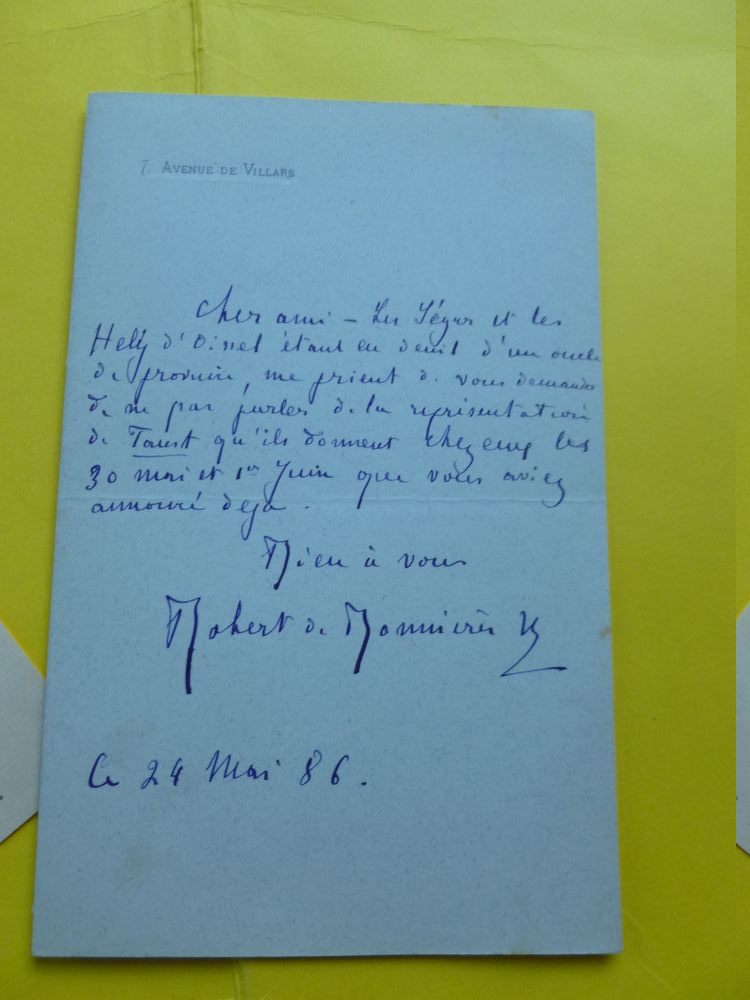 7. Avenue de Villars
Cher ami – Les Ségur et les
Hély d'Oissel étant en deuil d'un oncle
de province, me prient de vous demander
de ne pas parler de la représentation
de Faust qu'ils donnent chez eux les
30 mai et 1er Juin que vous aviez
annoncé déjà.
Bien à vous
Robert de Bonnières
Ce 24 Mai 86.